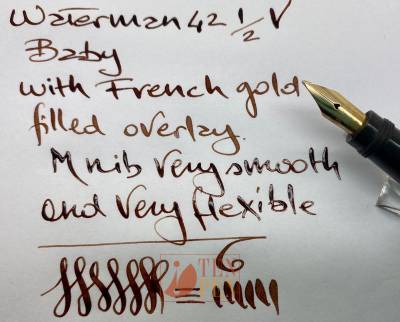 Waterman 42 1/2 V
Baby
with French gold
filled overlay.
M nib very smooth
and very flexible
TEN
PEN